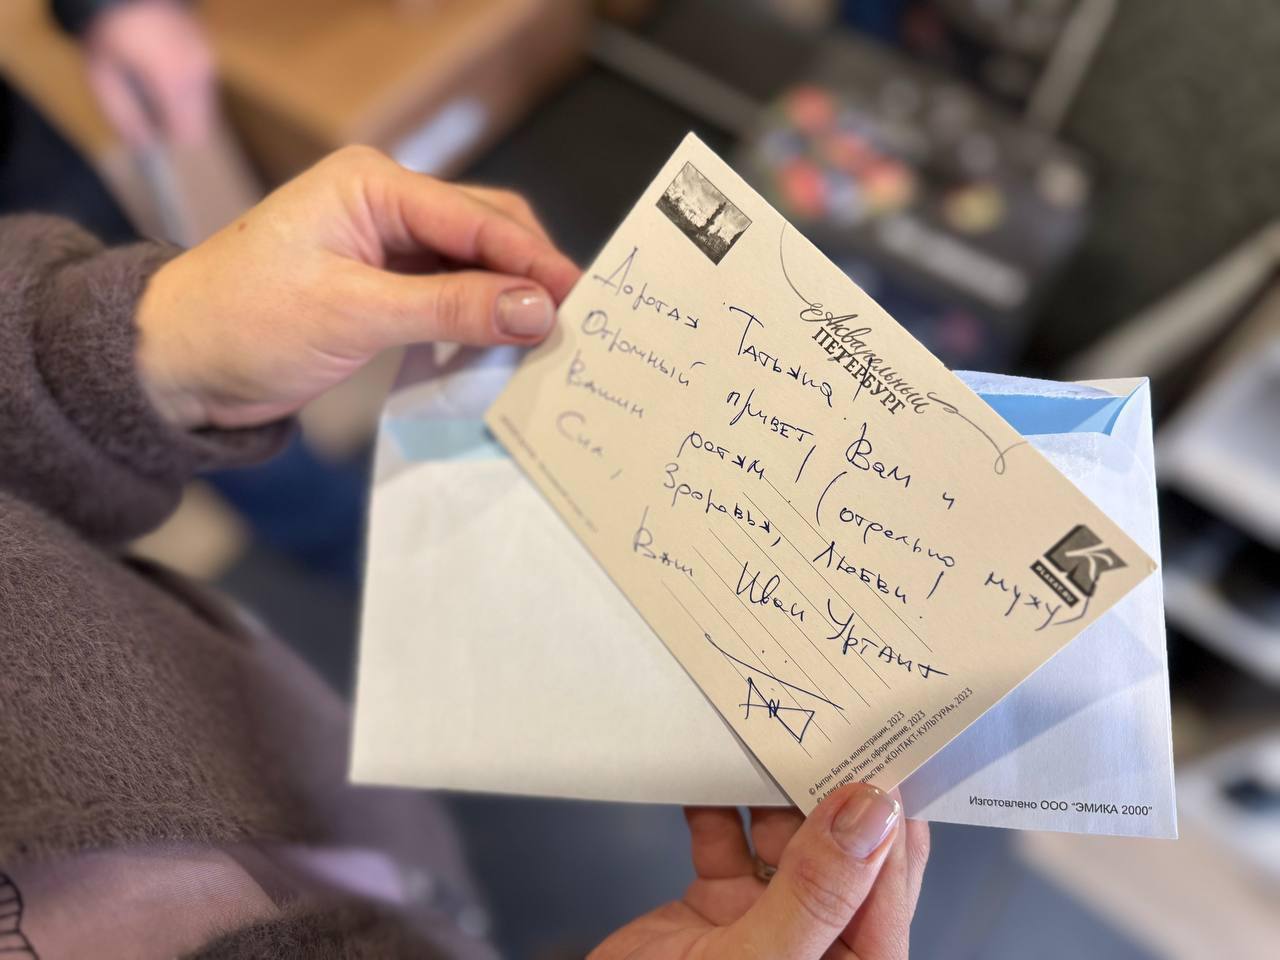 Акварельный
ПЕТЕРБУРГ
Дорогая Татьяна!
Огромный привет Вам и
Вашим ротям! (отдельно мужу)
Сил, Здоровья, Любви!
Ваш Иван Ургант
PLAKAT.RU
© Антон Батов, иллюстрации, 2023
© Александр Уткин, оформление, 2023
«КОНТАКТ-КУЛЬТУРА», 2023
Изготовлено ООО "ЭМИКА 2000"